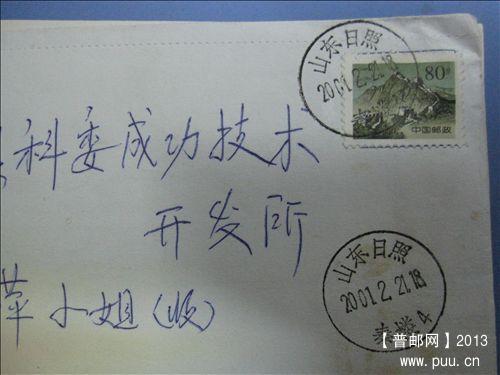 山东日照
2001.2.21.18
80分
中国邮政
科委成功技术
开发所
苹小姐(收)
山东日照
2001.2.21.18
4
【普邮网】2013
www.puu.cn